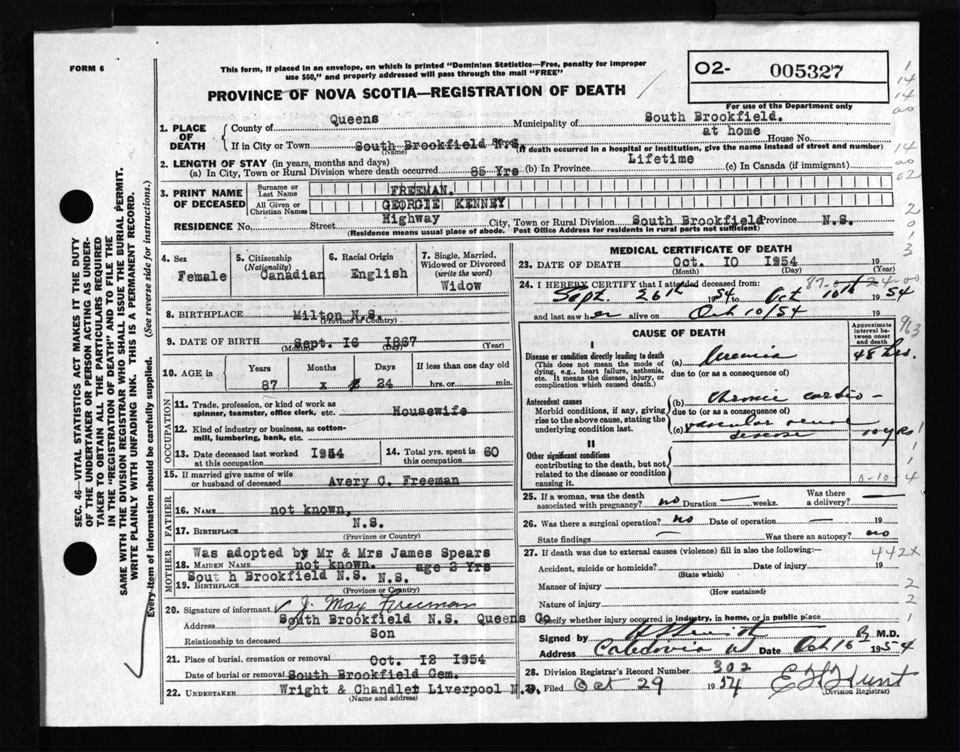 FORM 6
This form, if placed in an envelope, on which is printed "Dominion Statistics—Free, penalty for improper
use $50," and properly addressed will pass through the mail "FREE"
O2- 005327
For use of the Department only
PROVINCE OF NOVA SCOTIA—REGISTRATION OF DEATH
1. PLACE OF DEATH
County of Queens Municipality of South Brookfield.
at home
If in City or Town South Brookfield N.S. House No.
(Name) (If death occurred in a hospital or institution, give the name instead of street and number)
2. LENGTH OF STAY (in years, months and days)
(a) In City, Town or Rural Division where death occurred 85 Yrs (b) In Province Lifetime (c) In Canada (if immigrant)
3. PRINT NAME OF DECEASED
Surname or Last Name FREEMAN.
All Given or Christian Names GEORGIE KENNEY
RESIDENCE No. Street Highway City, Town or Rural Division South Brookfield Province N.S.
(Residence means usual place of abode. Post Office Address for residents in rural parts not sufficient)
4. Sex Female
5. Citizenship (Nationality) Canadian
6. Racial Origin English
7. Single, Married, Widowed or Divorced (write the word) Widow
8. BIRTHPLACE Milton N.S.
(Province or Country)
9. DATE OF BIRTH Sept. 16 1867
(Month) (Day) (Year)
10. AGE in Years Months Days If less than one day old
87 x 24 hrs. or min.
OCCUPATION
11. Trade, profession, or kind of work as
spinner, teamster, office clerk, etc. Housewife
12. Kind of industry or business, as cotton-
mill, lumbering, bank, etc.
13. Date deceased last worked at this occupation 1954
14. Total yrs. spent in this occupation 60
15. If married give name of wife
or husband of deceased Avery C. Freeman
FATHER
16. NAME not known,
17. BIRTHPLACE N.S.
(Province or Country)
MOTHER
Was adopted by Mr & Mrs James Spears
18. MAIDEN NAME not known. age 2 Yrs
Sout h Brookfield N.S. N.S.
19. BIRTHPLACE
(Province or Country)
20. Signature of informant J. Max Freeman
Address South Brookfield N.S. Queens Co
Relationship to deceased Son
21. Place of burial, cremation or removal Oct. 12 1954
Date of burial or removal South Brookfield Cem.
22. UNDERTAKER Wright & Chandler Liverpool N.S.
(Name and address)
MEDICAL CERTIFICATE OF DEATH
23. DATE OF DEATH Oct. 10 1954 19
(Month) (Day) (Year)
24. I HEREBY CERTIFY that I attended deceased from:
Sept. 26th 1954 to Oct 10th 1954
and last saw her alive on Oct 10/54 19
CAUSE OF DEATH
Approximate interval between onset and death
I
Disease or condition directly leading to death
(This does not mean the mode of
dying, e.g., heart failure, asthenia,
etc. It means the disease, injury, or
complication which caused death.)
(a) Uremia 48 hrs.
due to (or as a consequence of)
Antecedent causes
Morbid conditions, if any, giving
rise to the above cause, stating the
underlying condition last.
(b) Chronic cardio-
due to (or as a consequence of)
(c) vascular renal
disease 10 yrs
II
Other significant conditions
contributing to the death, but not
related to the disease or condition
causing it.
25. If a woman, was the death
associated with pregnancy? no Duration — weeks. Was there a delivery? —
26. Was there a surgical operation? no Date of operation — 19
State findings — Was there an autopsy? no
27. If death was due to external causes (violence) fill in also the following:—
442X
Accident, suicide or homicide? Date of injury 19
(State which)
Manner of injury
(How sustained)
Nature of injury
Specify whether injury occurred in industry, in home, or in public place
Signed by M.D.
Address Caledonia Date Oct 16 1954
28. Division Registrar's Record Number 302
Filed Oct 29 1954 E H Hunt
(Division Registrar)
SEC. 46—VITAL STATISTICS ACT MAKES IT THE DUTY
OF THE UNDERTAKER OR PERSON ACTING AS UNDER-
TAKER TO OBTAIN ALL THE PARTICULARS REQUIRED
IN THE "REGISTRATION OF DEATH" AND TO FILE THE
SAME WITH THE DIVISION REGISTRAR WHO SHALL ISSUE THE BURIAL PERMIT.
WRITE PLAINLY WITH UNFADING INK. THIS IS A PERMANENT RECORD.
Every item of information should be carefully supplied. (See reverse side for instructions.)